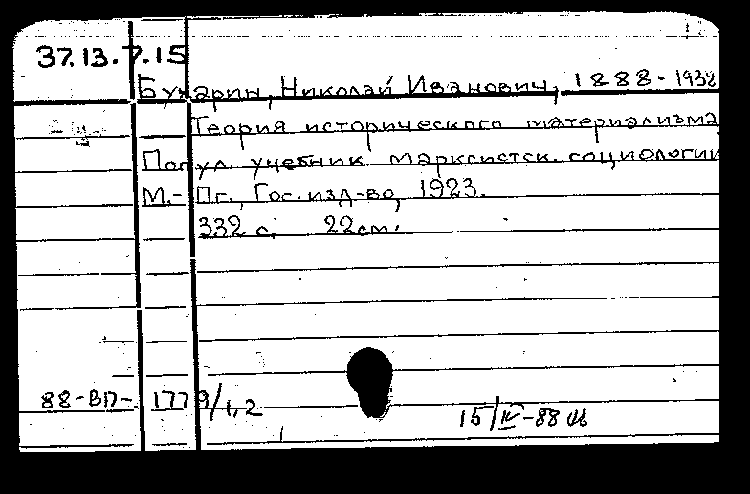 37.13.7.15
Бухарин, Николай Иванович, 1888-1938
Теория исторического материализма
Попул учебник марксистск. социологии
М.- Пг., Гос. изд-во, 1923.
332 с. 22 см.
88-ВП- 1779/1,2
15/IV-88